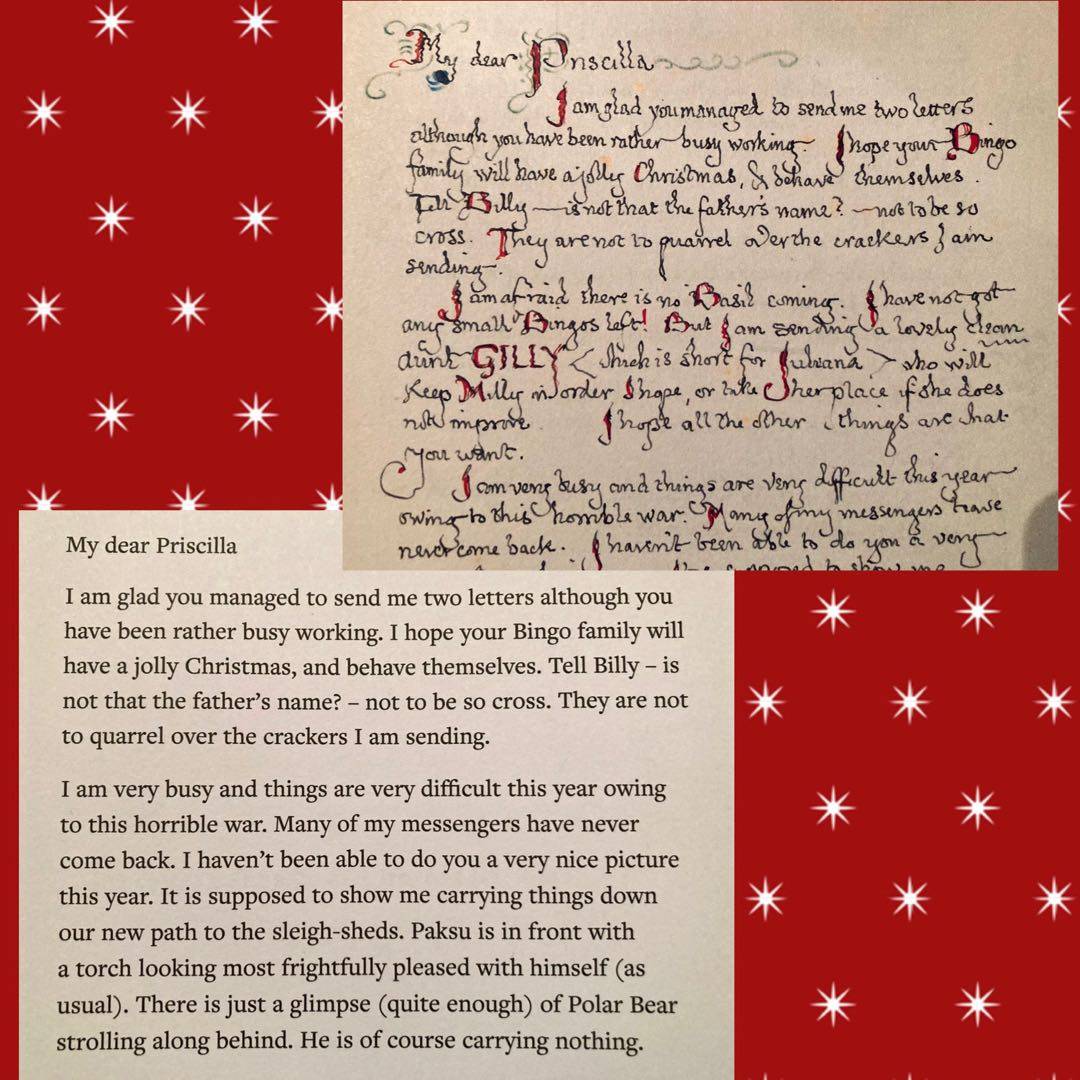 My dear Priscilla
I am glad you managed to send me two letters
although you have been rather busy working. I hope your Bingo
family will have a jolly Christmas, & behave themselves.
Tell Billy — is not that the father's name? — not to be so
cross. They are not to quarrel over the crackers I am
sending.
I am afraid there is no Basil coming. I have not got
any small Bingos left! But I am sending a lovely clean
aunt GILLY < which is short for Juliana > who will
keep Milly in order I hope, or take her place if she does
not improve. I hope all the other things are what
you want.
I am very busy and things are very difficult this year
owing to this horrible war. Many of my messengers have
never come back. I haven't been able to do you a very
supposed to show me
My dear Priscilla
I am glad you managed to send me two letters although you
have been rather busy working. I hope your Bingo family will
have a jolly Christmas, and behave themselves. Tell Billy – is
not that the father's name? – not to be so cross. They are not
to quarrel over the crackers I am sending.
I am very busy and things are very difficult this year owing
to this horrible war. Many of my messengers have never
come back. I haven't been able to do you a very nice picture
this year. It is supposed to show me carrying things down
our new path to the sleigh-sheds. Paksu is in front with
a torch looking most frightfully pleased with himself (as
usual). There is just a glimpse (quite enough) of Polar Bear
strolling along behind. He is of course carrying nothing.